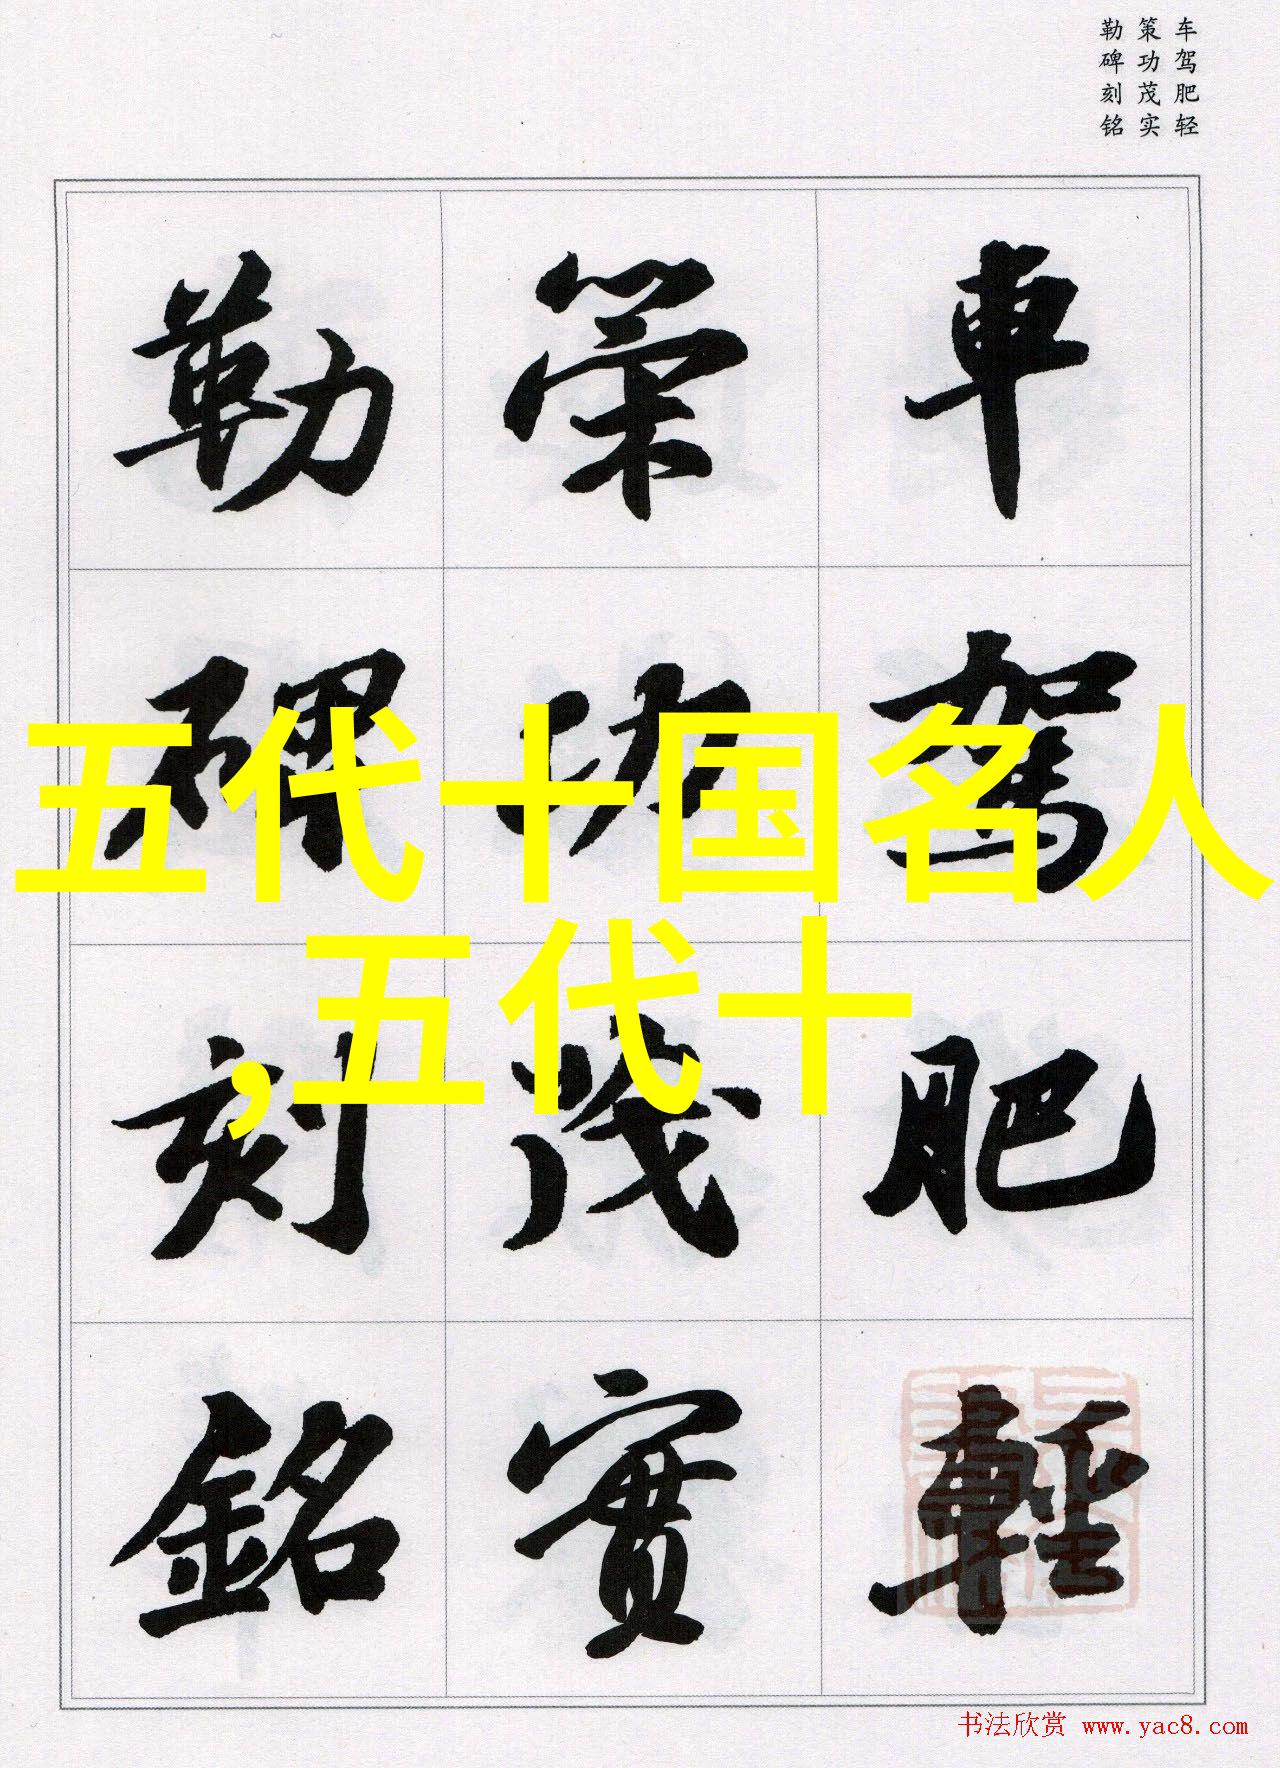 车驾肥轻
策功茂实
勒碑刻铭
車駕肥輕
策功茂實
勒碑刻銘
五代十国名人
,五代十
书法欣赏 www.yac8.com